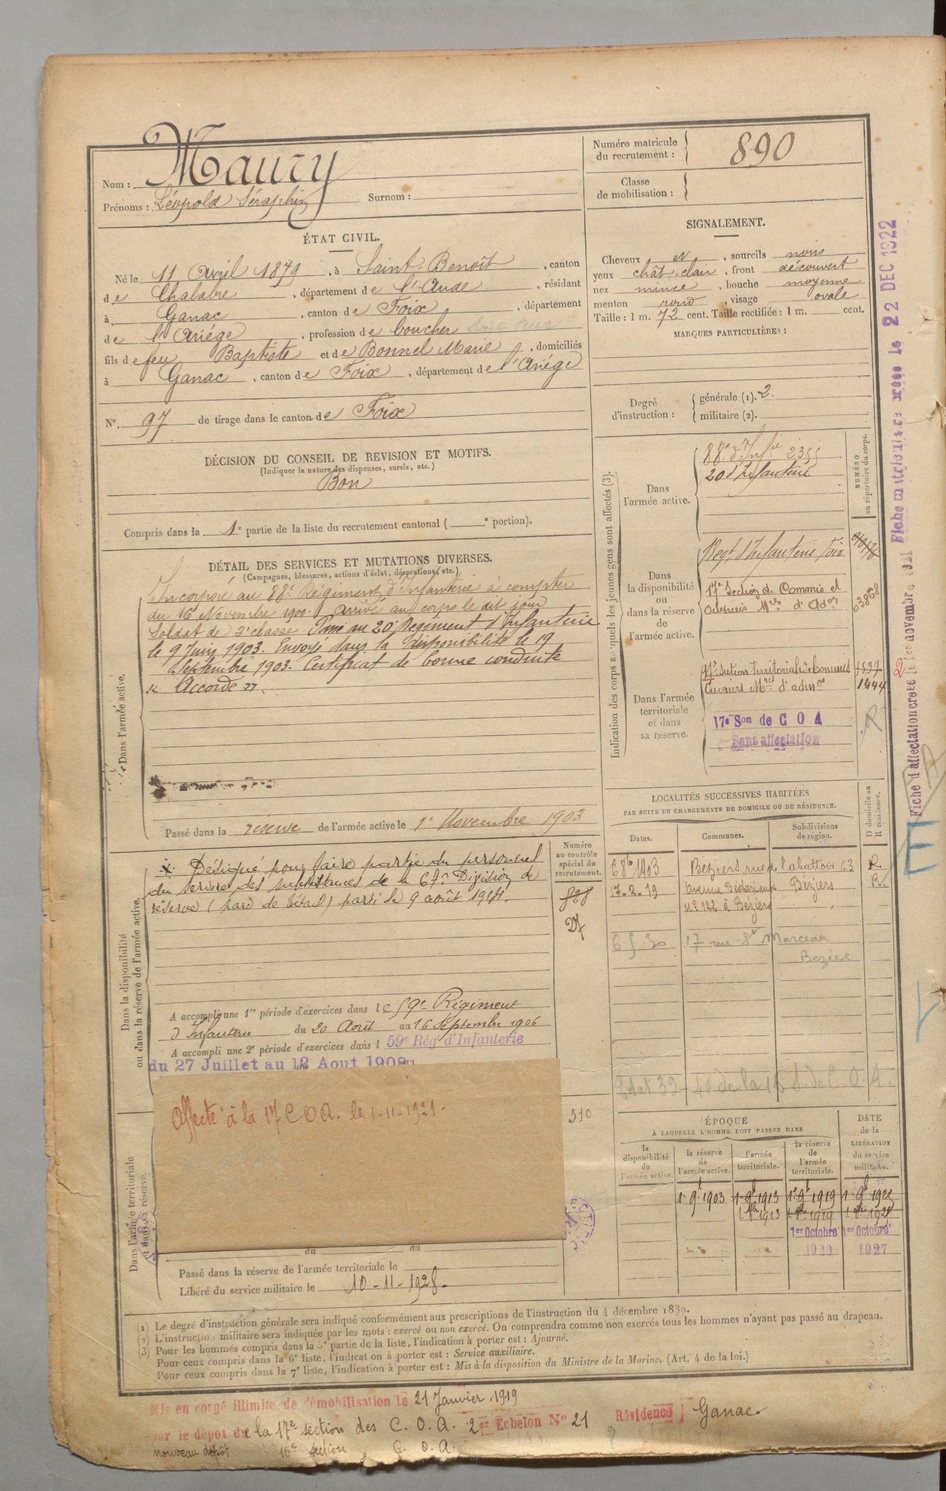 Nom : Maury
Prénoms : Léopold Séraphin Surnom :
Numéro matricule du recrutement : 890
Classe de mobilisation :
ÉTAT CIVIL.
Né le 11 Avril 1879, à Saint-Benoît, canton
de Chalabre, département de l'Aude, résidant
à Ganac, canton de Foix, département
de l'Ariége, profession de boucher
fils de feu Baptiste et de Bonnel Marie, domiciliés
à Ganac, canton de Foix, département de l'Ariége
N° 97 de tirage dans le canton de Foix
SIGNALEMENT.
Cheveux N, sourcils noirs
yeux chât-clair, front découvert
nez mince, bouche moyenne
menton rond, visage ovale
Taille : 1 m. 72 cent. Taille rectifiée : 1 m. cent.
MARQUES PARTICULIÈRES :
Degré d'instruction : générale (1). 2.
militaire (2).
DÉCISION DU CONSEIL DE REVISION ET MOTIFS.
(Indiquer la nature des dispenses, sursis, etc.)
Bon
Compris dans la 1e partie de la liste du recrutement cantonal ( e portion).
DÉTAIL DES SERVICES ET MUTATIONS DIVERSES.
(Campagnes, blessures, actions d'éclat, décorations, etc.)
Dans l'armée active.
Incorporé au 88e Régiment d'Infanterie à compter
du 16 Novembre 1900 arrivé au corps le dit jour
Soldat de 2e classe. Passé au 20e Régiment d'Infanterie
le 9 Juin 1903. Envoyé dans la disponibilité le 19
Septembre 1903. Certificat de bonne conduite
" Accordé ".
Passé dans la réserve de l'armée active le 1er Novembre 1903
Indication des corps auxquels les jeunes gens sont affectés (3).
NUMÉRO au répertoire du corps.
Dans l'armée active.
88e d'Infie
20 d'Infanterie
Dans la disponibilité ou dans la réserve de l'armée active.
Regt d'Infanterie Foix
17e Section de Commis et
Ouvriers Mres d'Adon
Dans l'armée territoriale et dans sa réserve.
Ouvriers Mres d'admon
1444
17e Son de C O A
Sans affectation
R
Fiche matriculaire créée le 22 DEC 1922
Fiche d'affectation créée le 1er novembre 1921
LOCALITÉS SUCCESSIVES HABITÉES
PAR SUITE DE CHANGEMENTS DE DOMICILE OU DE RÉSIDENCE.
Dates. Communes. Subdivisions de région. D domicile ou R résidence.
Béziers rue de l'abattoir 23 R.
17.2.19 Avenue Bédarieux Béziers R.
n° 122 à Béziers
17 rue Gl Marceau
Béziers
Dans la disponibilité ou dans la réserve de l'armée active.
Numéro au contrôle spécial du recrutement.
Désigné pour faire partie du personnel
du service des subsistances de la 67e Division de
réserve (parc de bétail) parti le 9 août 1914.
A accompli une 1re période d'exercices dans le 59e Régiment
d'Infanterie du 20 Août au 16 Septembre 1906
A accompli une 2e période d'exercices dans l 59e Rég d'Infanterie
du 27 Juillet au 12 Aout 1909
Affecté à la 17 C O A. le 1-11-1921.
310
Dans l'armée territoriale et dans sa réserve.
du au
Passé dans la réserve de l'armée territoriale le
Libéré du service militaire le 10-11-1928.
ÉPOQUE
À LAQUELLE L'HOMME DOIT PASSER DANS
DATE de la LIBÉRATION du service militaire.
la disponibilité de l'armée active. la réserve de l'armée active. l'armée territoriale. la réserve de l'armée territoriale.
1.9bre 1903 1.9bre 1913 1.9bre 1919
1er Octobre 1920 1er Octobre 1927
(1) Le degré d'instruction générale sera indiqué conformément aux prescriptions de l'instruction du 4 décembre 1889.
(2) L'instruction militaire sera indiquée par les mots : exercé ou non exercé. On comprendra comme non exercés tous les hommes n'ayant pas passé au drapeau.
(3) Pour les hommes compris dans la 5e partie de la liste, l'indication à porter est : Ajourné.
Pour ceux compris dans la 6e liste, l'indication à porter est : Service auxiliaire.
Pour ceux compris dans la 7e liste, l'indication à porter est : Mis à la disposition du Ministre de la Marine. (Art. 4 de la loi.)
Mis en congé illimité de démobilisation le 21 Janvier 1919
par le dépôt de la 17e section des C. O. A. 2er Echelon N° 21 Résidence Ganac.
nouveau dépôt 16e section C. O. A.